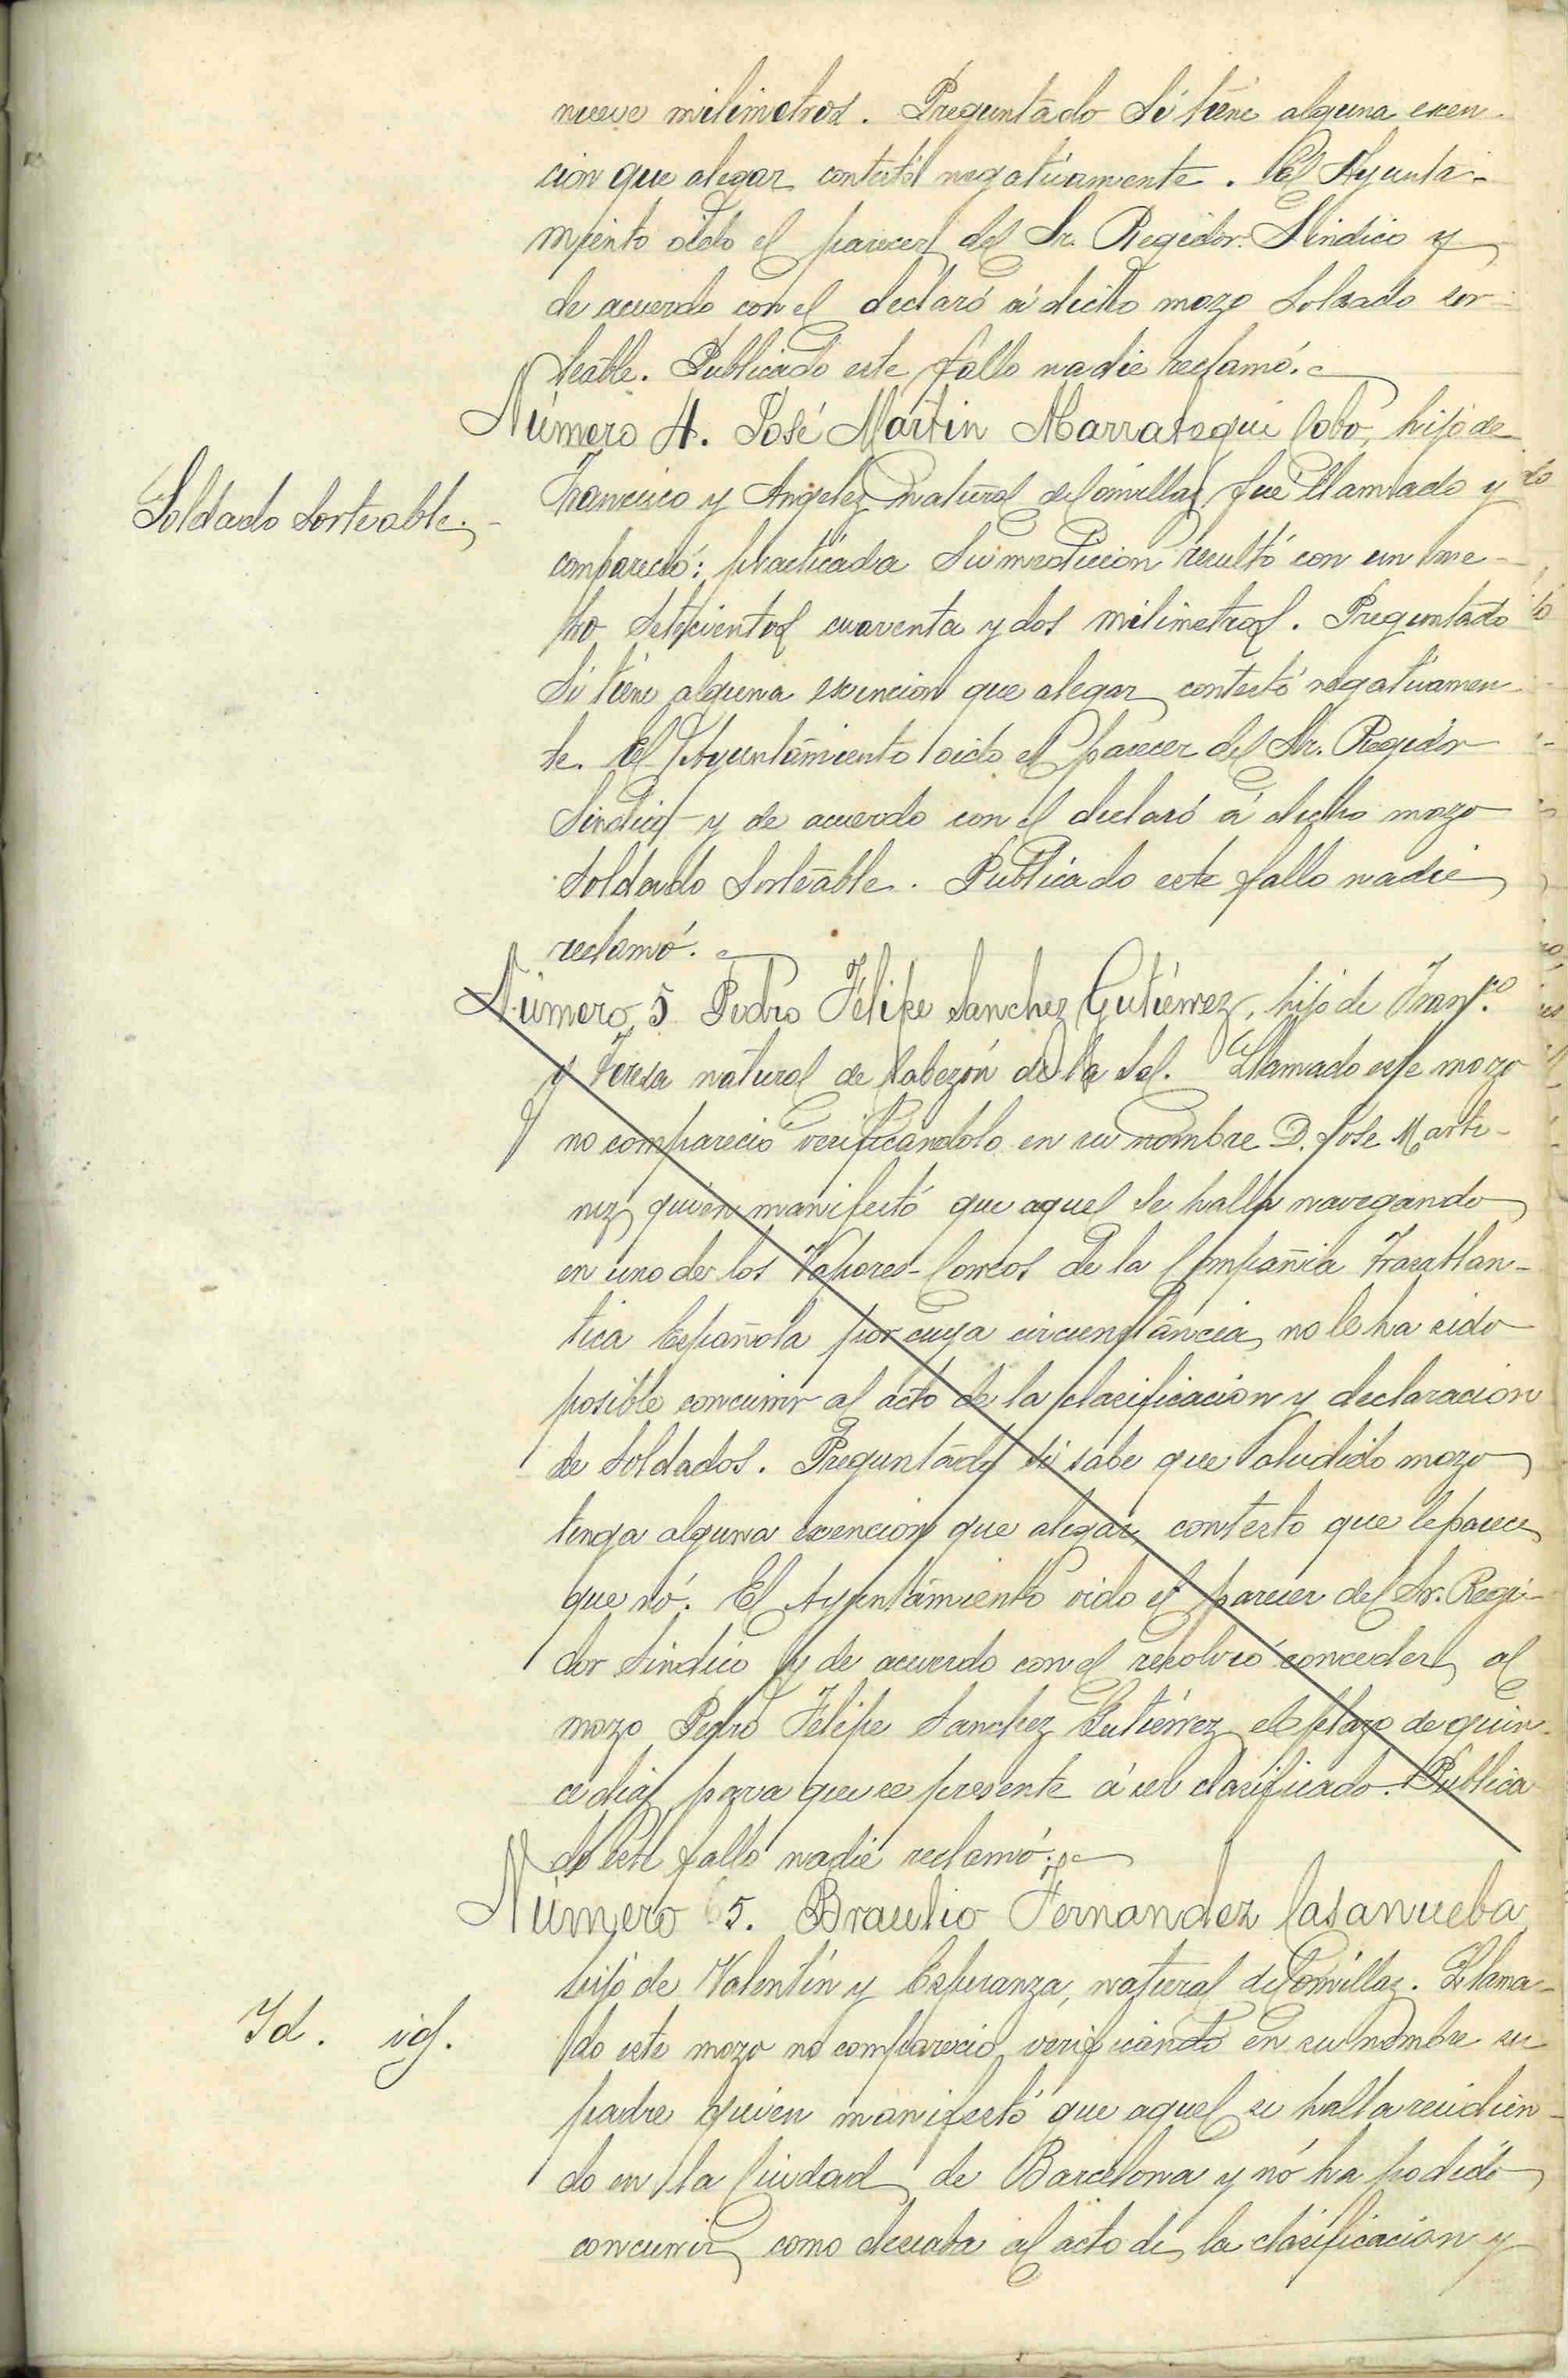 nueve milimetros. Preguntado si tiene alguna exen-
cion que alegar contestó negativamente. El Ayunta-
miento oido el parecer del Sr. Regidor Sindico y
de acuerdo con el declaró á dicho mozo soldado sor-
teable. Publicado este fallo nadie reclamó.
Número 4. José Martin Marrategui Cobo, hijo de
Soldado sorteable.
Francisco y Angeles natural de Comillas fue llamado y
compareció: practicada su medicion resultó con un me-
tro setecientos cuarenta y dos milimetros. Preguntado
si tiene alguna exencion que alegar contestó negativamen-
te. El Ayuntamiento oido el parecer del Sr. Regidor
Sindico y de acuerdo con el declaró á dicho mozo
soldado sorteable. Publicado este fallo nadie
reclamó.
Número 5 Pedro Felipe Sanchez Gutiérrez, hijo de Franco.
y Teresa natural de Cabezón de la Sal. Llamado este mozo
no compareció verificandolo en su nombre D. José Marti-
nez quien manifestó que aquel se halla navegando
en uno de los Vapores-Correos de la Compañia Trasatlan-
tica Española por cuya circunstancia no le ha sido
posible concurrir al acto de la clasificacion y declaracion
de soldados. Preguntado si sabe que aludido mozo
tenga alguna exencion que alegar contesto que le parece
que nó. El Ayuntamiento oido el parecer del Sr. Regi-
dor Sindico y de acuerdo con el resolvió conceder al
mozo Pedro Felipe Sanchez Gutiérrez el plazo de quin-
ce dias para que se presente á ser clasificado. Publica
do este fallo nadie reclamó.
Número 5. Braulio Fernandez Casanueba
hijo de Valentín y Esperanza, natural de Comillas. Llama-
Id. id.
do este mozo no compareció verificando en su nombre su
padre quien manifestó que aquel se halla residien-
do en la Ciudad de Barcelona y nó ha podido
concurrir como deseaba al acto de la clasificacion y